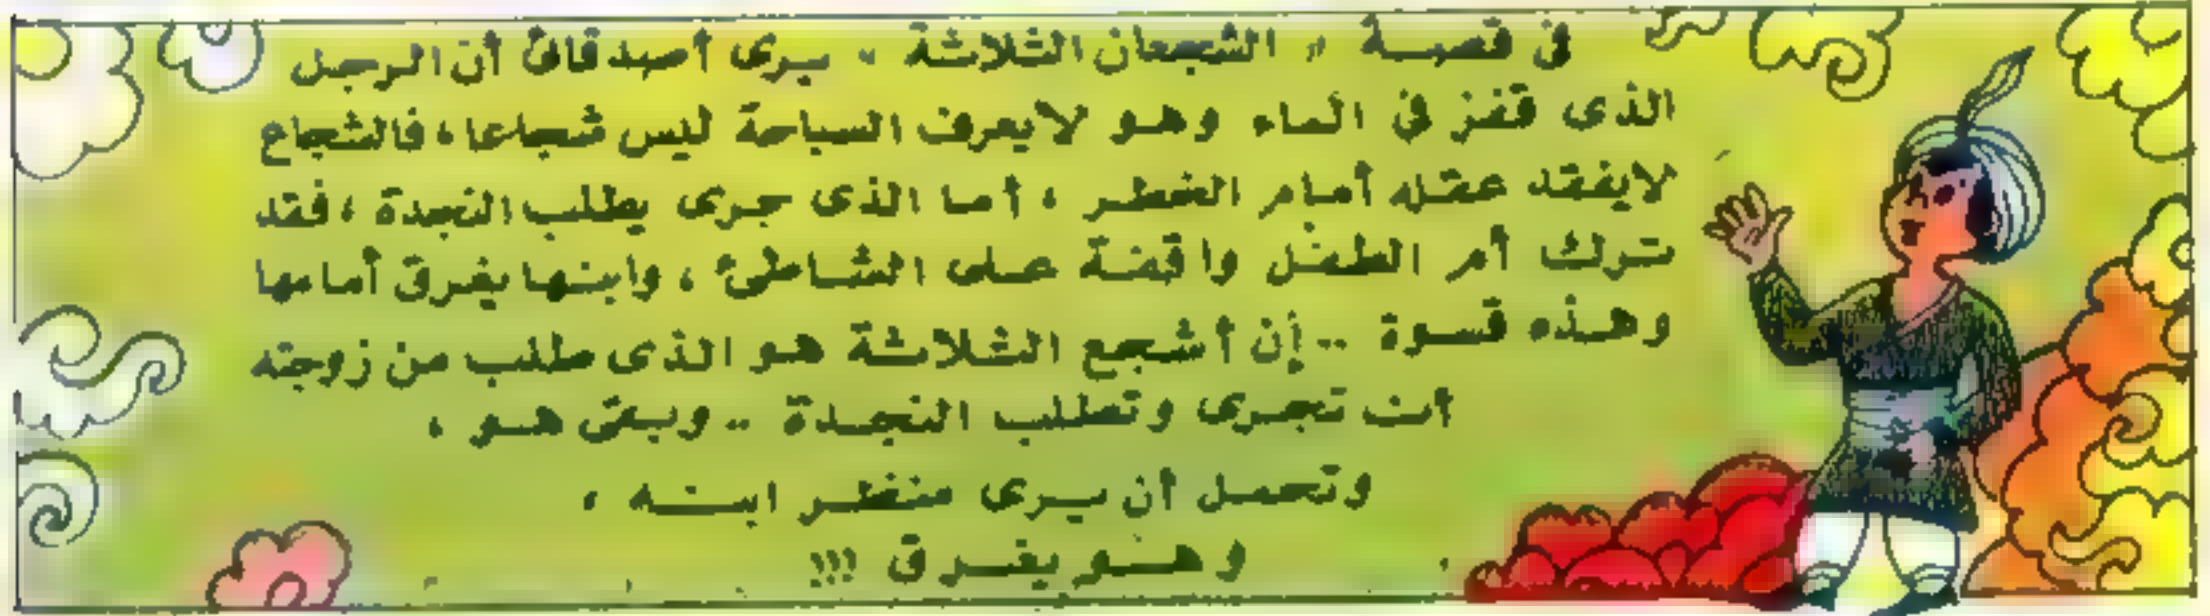 في قصة « الشجعان الثلاثة » يرى أصدقائى أن الرجل
الذى قفز في الماء وهو لايعرف السباحة ليس شجاعا ، فالشجاع
لايفقد عقله أمام الخطر ، أما الذى جرى يطلب النجدة ، فقد
ترك أم الطفل واقفة على الشاطئ ، وابنها يغرق أمامها
وهذه قسوة .. إن أشجع الثلاثة هو الذى طلب من زوجته
أن تجرى وتطلب النجدة .. وبقى هو ،
وتحمل أن يرى منظر ابنه ،
وهو يغرق !!!